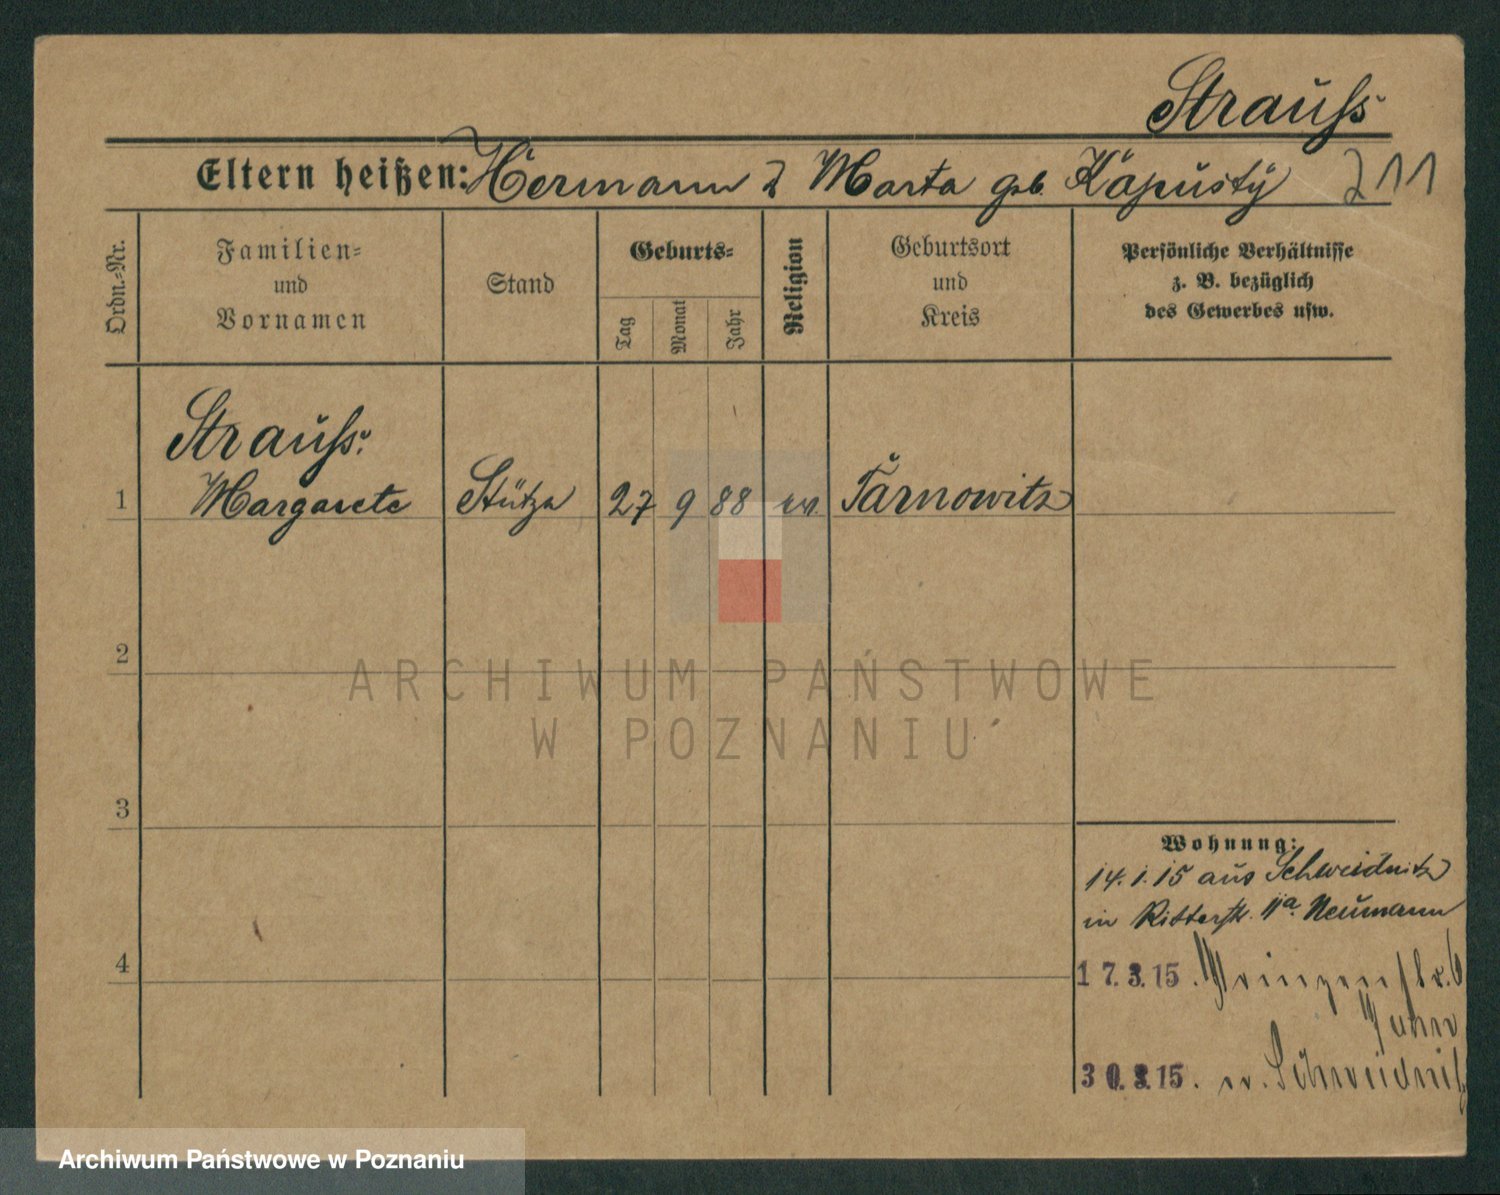 Strauss
Eltern heißen: Hermann & Marta geb. Kapusty 211
Ordn.-Nr.
Familien-
und
Vornamen
Stand
Geburts-
Tag
Monat
Jahr
Religion
Geburtsort
und
Kreis
Persönliche Verhältnisse
z. B. bezüglich
des Gewerbes usw.
Strauss.
1 Margarete Stütze 27 9 88 Tarnowitz
2
3
4
Wohnung:
14.1.15 aus Schweidnitz
in Ritterstr. 11a. Neumann
17.3.15. Prinzenstr. 6
30.3.15. n. Schweidnitz
ARCHIWUM PAŃSTWOWE
W POZNANIU
Archiwum Państwowe w Poznaniu